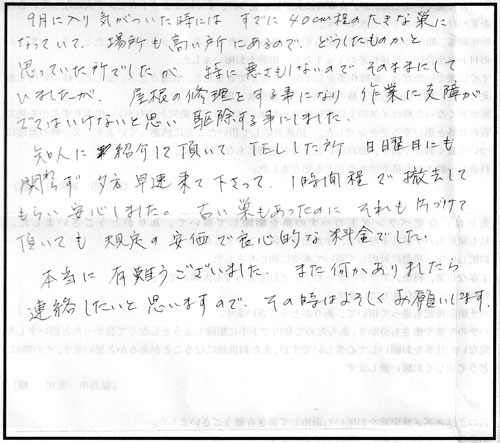 9月に入り気がついた時には すでに40cm程の大きな巣に
なっていて、場所も高い所にあるので、どうしたものかと
思っていた所でしたが、特に悪さもしないので そのままにして
いましたが、屋根の修理をする事になり 作業に支障が
でていけないと思い 駆除する事にしました。
知人に紹介して頂いて TELした所 日曜日にも
関らず 夕方 早速来て下さって、1時間程で撤去して
もらい安心しました。古い巣もあったのに それも片づけて
頂いても 規定の安価で良心的な料金でした。
本当に 有難うございました。また何かありましたら
連絡したいと思いますので、その時はよろしくお願いします。